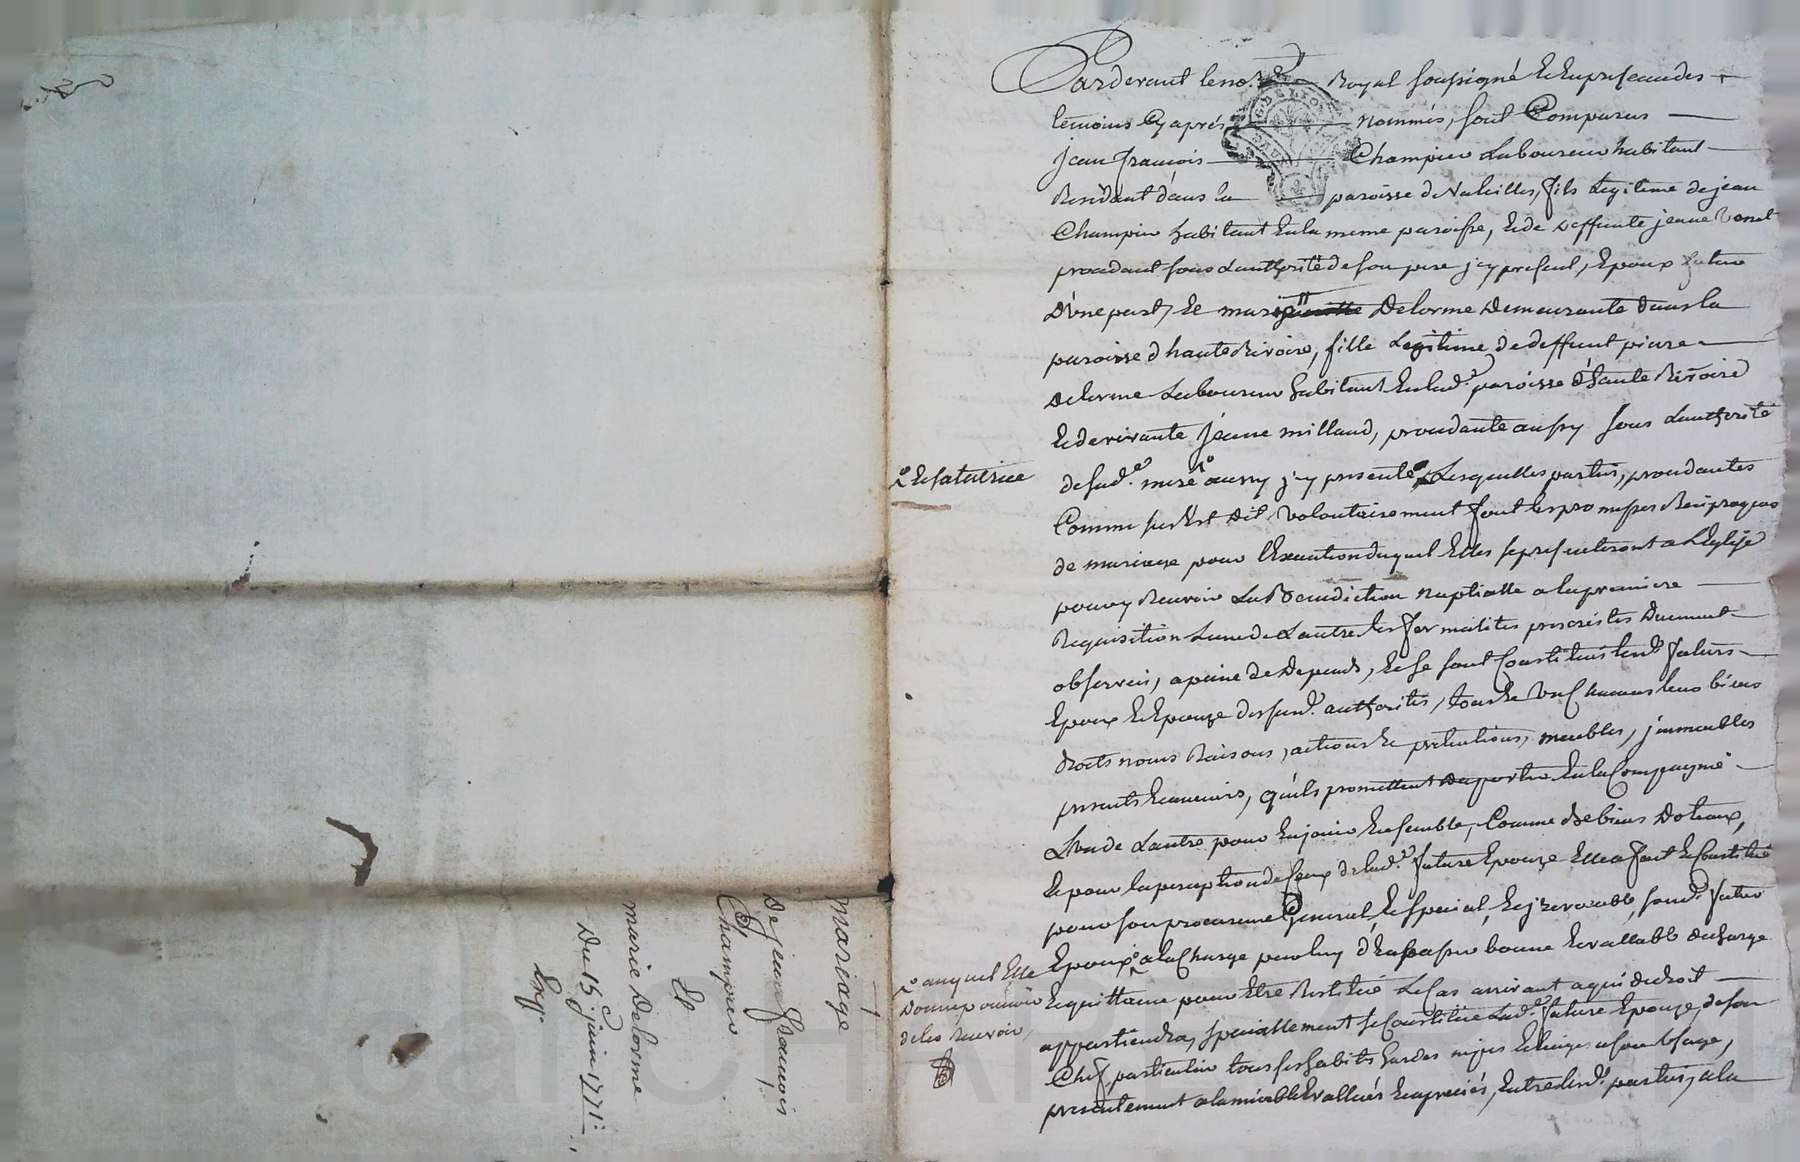 Pardevant le no.re Royal soussigné et en presence des
temoins Cy aprés nommés, sont Comparus
jean francois Champier Laboureur habitant
Residant dans la paroisse de Valeilles, fils Legitime de jean
Champier habitant en la meme paroisse, et de deffunte jeanne
procedant sous L'authorité de son pere j'cy present, Epoux futur
D'une part, et marie Delorme Demeurante dans la
paroisse d'hauteRivoire, fille Legitime de deffunt piere
Delorme Laboureur habitant en lad.e paroisse d'haute Rivoire
et de vivante jeanne millaud, procedante aussy sous L'authorité
de sad.e mere aussy j'cy presente Lesquelles parties, procedantes
Comme sus Est Dit volontairement font les promesses Reciproques
de mariage pour l'Execution duquel Elles se presenteront a L'Eglise
pour y Recevoir La Benediction nuptialle a la premiere
Requisition L'une de L'autre les formalites prescrites Duement
observeés, a peine de Depends, et se sont Constitués lesd. futurs
Epoux et Epouze des susd. authorités, tous et Un Chacuns leurs biens
droits noms Raisons, actions et pretentions, meubles, jmmeubles
presents et avenirs, qu'ils promettent Daporter en la Compagnie
L'un de L'autre pour En jouir Ensemble, Comme de biens Dotaux,
et pour la perception de Ceux de lad.e future Epouze Elle a fait et Constitué
pour son procureur General et special, et jrrevocable, sond. futur
Epoux a la Charge par luy d'En passer bonne et vallable decharge
et quittance pour Etre Restitué Le Cas arrivant a qui de droit
appartiendra, specialement se Constitue Lad.e future Epouze, de son
Chef particulier tous ses habits hardes nipes et linges a son Usage,
presentement a l'amiable Evallués et apreciés, Entre lesd. parties, a la
et sa tutrice
auquel Elle
Donne pouvoir
de les Recevoir
mariage
De jean francois
Champier
Et
marie Delorme
Du 15.e juin 1771.
Exp.